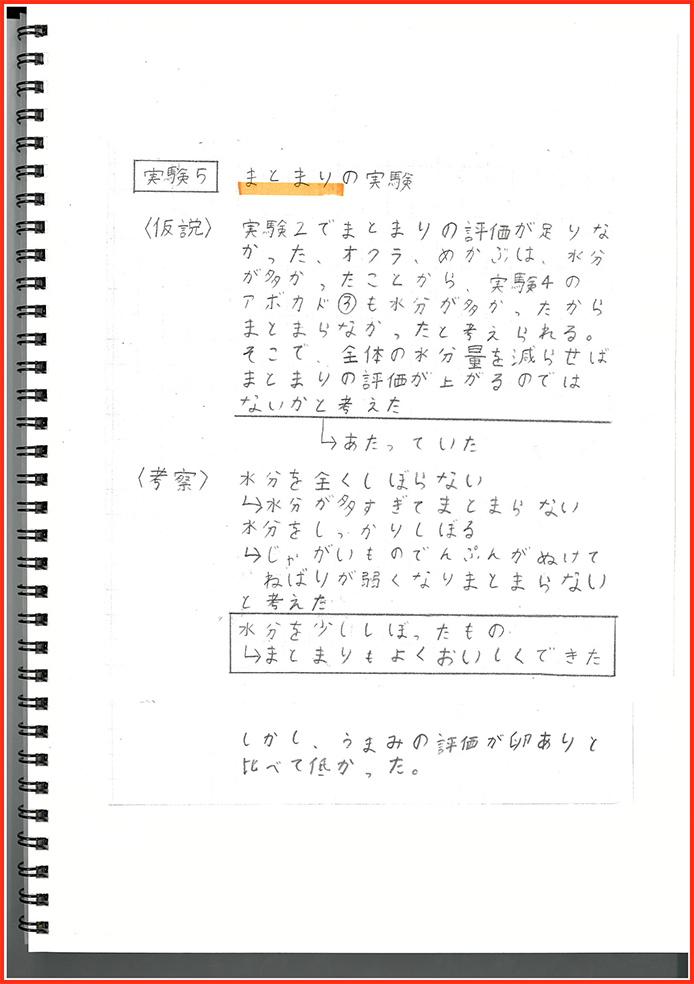 実験5 まとまりの実験
〈仮説〉 実験2でまとまりの評価が足りな
かった、オクラ、めかぶは、水分
が多かったことから、実験4の
アボカド③も水分が多かったから
まとまらなかったと考えられる。
そこで、全体の水分量を減らせば
まとまりの評価が上がるのでは
ないかと考えた
↳あたっていた
〈考察〉 水分を全くしぼらない
↳水分が多すぎてまとまらない
水分をしっかりしぼる
↳じゃがいものでんぷんがぬけて
ねばりが弱くなりまとまらない
と考えた
水分を少ししぼったもの
↳まとまりもよくおいしくできた
しかし、うまみの評価が卵ありと
比べて低かった。